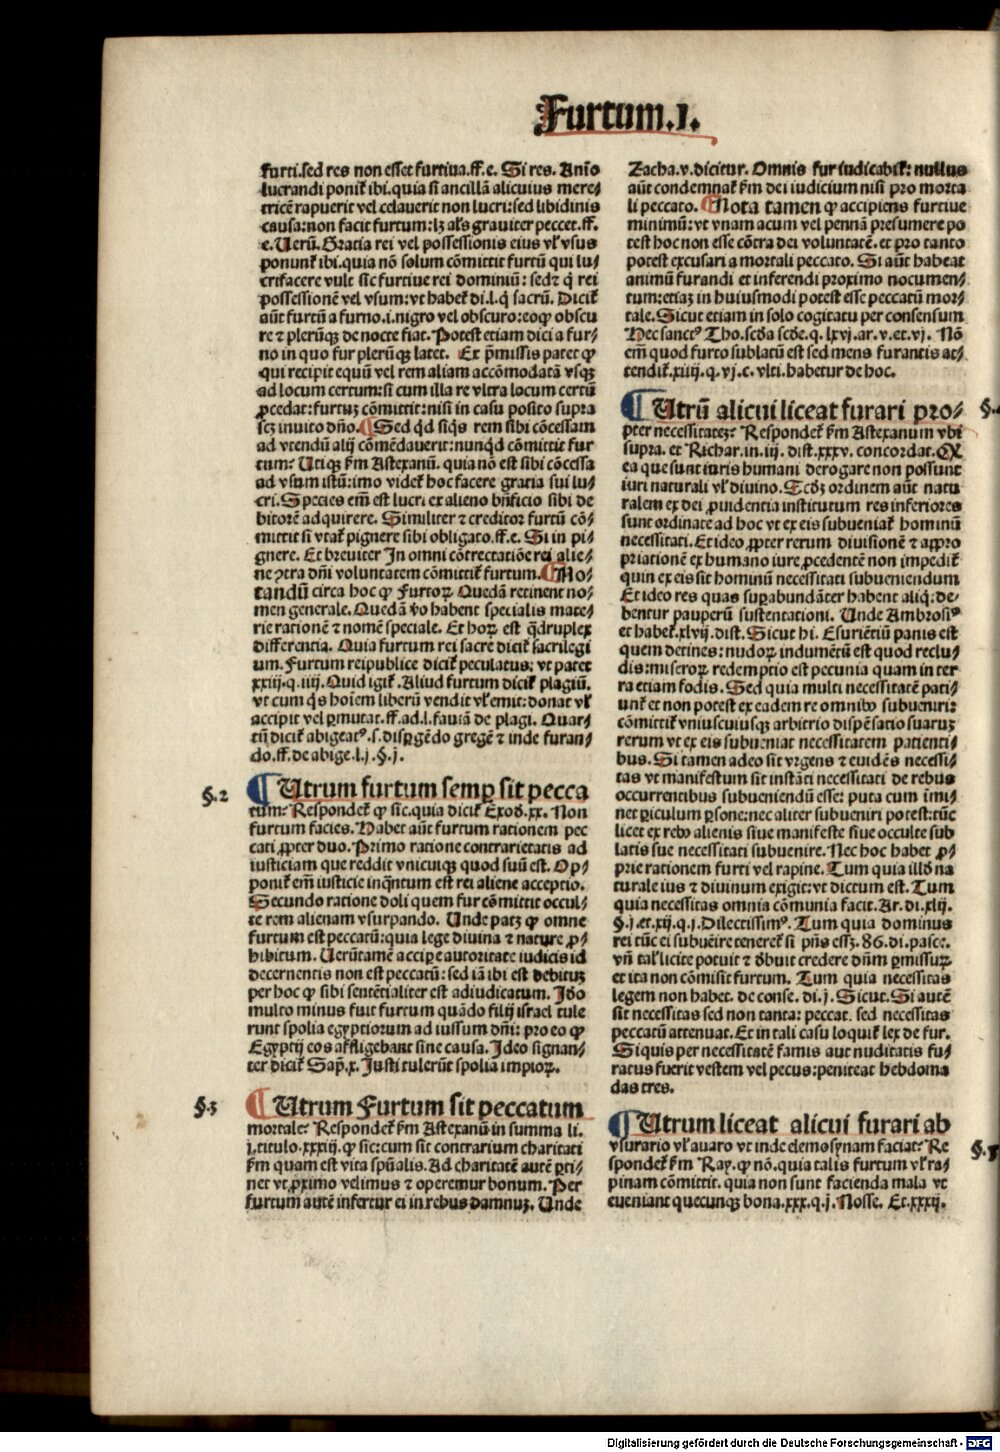 Furtum.1.
furti.sed res non esset furtiua.ff.e. Si res. Anīo
lucrandi ponit̄ ibi.quia si ancillā alicuius mere⸗
tricē rapuerit vel celauerit non lucri:sed libidinis
causa:non facit furtum:lꝫ al̄s grauiter peccet.ff.
e.Uerū.Gratia rei vel possessionis eius vl̄ vsus
ponunt̄ ibi.quia nō solum cōmittit furtū qui lu⸗
crifacere vult sic furtiue rei dominiū: sedꝫ q̇ rei
possessionē vel vsum:vt habet̄ di.l.q̇ sacrū. Dicit̄
aūt furtū a furno.i.nigro vel obscuro:eoqꝫ obscu
re ⁊ plerūqꝫ de nocte fiat. Potest etiam dici a fur⸗
no in quo fur plerūqꝫ latet. Ex p̄missis patet ꝙ
qui recipit equū vel rem aliam accōmodatā vsqꝫ
ad locum certum:si cum illa re vltra locum certū
ꝓcedat:furtuꝫ cōmittit:nisi in casu posito supra
scꝫ inuito dn̄o. Sed qd siq̄s rem sibi cōcessam
ad vtendū alij cōmēdauerit:nunqd cōmittit fur
tum: Utiqꝫ s̄m Astexanū. quia nō est sibi cōcessa
ad vsum istū:imo videt̄ hoc facere gratia sui lu⸗
cri.Species em̄ est lucri ex alieno bn̄ficio sibi de
bitorē adquirere. Similiter ⁊ creditor furtū cō⸗
mittit si vtat̄ pignere sibi obligato.ff.e. Si in pi⸗
gnere. Et breuiter In omni cōtrectatiōe rei alie⸗
ne ꝯtra dn̄i voluntatem cōmittit̄ furtum. No⸗
tandū circa hoc ꝙ Furtoꝝ Quedā retinent no⸗
men generale.Quedā v̄o habent specialis mate⸗
rie rationē ⁊ nomē speciale. Et hoꝝ est q̄druplex
differentia. Quia furtum rei sacre dicit̄ sacrilegi
um. Furtum reipublice dicit̄ peculatus: vt patet
xxiij.q.iiij. Quid igit̄. Aliud furtum dicit̄ plagiū.
vt cum q̄s hoīem liberū vendit vl̄ emit: donat vl̄
accipit vel ꝑmutat.ff.ad.l.fauiā de plagi. Quar⸗
tū dicit̄ abigeatꝰ.s.disꝑgēdo gregē ⁊ inde furan⸗
do.ff.de abige.l.j.§.j.
§.2 Utrum furtum semꝑ sit pecca
tum: Respondet̄ ꝙ sic.quia dicit̄ Exod̄.xx. Non
furtum facies. Habet aūt furtum rationem pec
cati ꝓpter duo. Primo ratione contrarietatis ad
iusticiam que reddit vnicuiqꝫ quod suū est. Op⸗
ponit̄ em̄ iusticie inq̄ntum est rei aliene acceptio.
Secundo ratione doli quem fur cōmittit occul⸗
te rem alienam vsurpando. Unde patꝫ ꝙ omne
furtum est peccatū:quia lege diuina ⁊ nature ꝓ⸗
hibitum. Uerūtamē accipe autoritate iudicis id
decernentis non est peccatū: sed iā ibi est debituꝫ
per hoc ꝙ sibi sentētialiter est adiudicatum. Id̄o
multo minus fuit furtum quādo filij israel tule
runt spolia egyptiorum ad iussum dn̄i: pro eo ꝙ
Egyptij eos affligebant sine causa. Ideo signan⸗
ter dicit̄ Sap̄.x. Justi tulerūt spolia impioꝝ.
§.3 Utrum Furtum sit peccatum
mortale: Respondet̄ s̄m Astexanū in summa li.
j.titulo.xxxiij. ꝙ sic:cum sit contrarium charitati
s̄m quam est vita spūalis. Ad charitatē autē ꝑti⸗
net vt ꝓximo velimus ⁊ operemur bonum. Per
furtum autē infertur ei in rebus damnuꝫ. Unde
Zacha.v.dicitur. Omnis fur iudicabit̄: nullus
aūt condemnat̄ s̄m dei iudicium nisi pro morta
li peccato. Nota tamen ꝙ accipiens furtiue
minimū: vt vnam acum vel pennā presumere po
test hoc non esse cōtra dei voluntatē. et pro tanto
potest excusari a mortali peccato. Si aūt habeat
animū furandi et inferendi proximo nocumen⸗
tum:etiaꝫ in huiusmodi potest esse peccatū mor⸗
tale. Sicut etiam in solo cogitatu per consensum
Hec sanctꝰ Tho.scd̄a scd̄e.q.lxvj.ar.v.et.vj. Nō
em̄ quod furto sublatū est sed mens furantis at⸗
tendit̄.xiiij.q.vj.c.vlti.habetur de hoc.
Utrū alicui liceat furari pro⸗ §.4
pter necessitateꝫ: Respondet̄ s̄m Astexanum vbi
supra. et Richar.in.iij. dist.xxxv. concordat. Qꝛ
ea que sunt iuris humani derogare non possunt
iuri naturali vl̄ diuino. Scd̄ꝫ ordinem aūt natu
ralem ex dei ꝓuidentia institutum res inferiores
sunt ordinate ad hoc vt ex eis subueniat̄ hominū
necessitati. Et ideo ꝓpter rerum diuisionē ⁊ aꝓpro
priationē ex humano iure ꝓcedentē non impedit̄
quin ex eis sit hominū necessitati subueniendum
Et ideo res quas suꝑabundāter habent aliq̄: de⸗
bentur pauperū sustentationi. Unde Ambrosiꝰ
et habet̄.xlvij.dist. Sicut hi. Esuriētiū panis est
quem detines: nudoꝝ indumētū est quod reclu⸗
dis:miseroꝝ redemptio est pecunia quam in ter
ra etiam fodis. Sed quia multi necessitatē pati⸗
unt̄ et non potest ex eadem re omnibꝰ subueniri:
cōmittit̄ vniuscuiusqꝫ arbitrio dispēsatio suaruꝫ
rerum vt ex eis subueniat necessitatem patienti⸗
bus. Si tamen adeo sit vrgens ⁊ euidēs necessi⸗
tas vt manifestum sit instāti necessitati de rebus
occurrentibus subueniendū esse: puta cum īmi⸗
net ꝑiculum ꝑsone:nec aliter subueniri potest:tūc
licet ex rebꝰ alienis siue manifeste siue occulte sub
latis sue necessitati subuenire. Nec hoc habet ꝓ⸗
prie rationem furti vel rapine. Tum quia illud na
turale ius ⁊ diuinum exigit: vt dictum est. Tum
quia necessitas omnia cōmunia facit. Ar.di.xlij.
§.j.et.xij.q.j.Dilectissimꝰ. Tum quia dominus
rei tūc ei subuēire teneret̄ si p̄ns essꝫ.86.di.pasce.
vn̄ tal̄ licite potuit ⁊ d̄buit credere dn̄m ꝑmissuꝝ
et ita non cōmisit furtum. Tum quia necessitas
legem non habet. de conse. di.j. Sicut. Si autē
sit necessitas sed non tanta: peccat. sed necessitas
peccatū attenuat. Et in tali casu loquit̄ lex de fur.
Si quis per necessitatē famis aut nuditatis fu⸗
ratus fuerit vestem vel pecus:peniteat hebdoma
das tres.
Utrum liceat alicui furari ab
vsurario vl̄ auaro vt inde elemosynam faciat: Re §.5
spondet̄ s̄m Ray. ꝙ nō.quia talis furtum vl̄ ra⸗
pinam cōmittit. quia non sunt facienda mala vt
eueniant quecunqꝫ bona.xxx.q.j. Nosse. Et.xxxij.
Digitalisierung gefördert durch die Deutsche Forschungsgemeinschaft - DFG